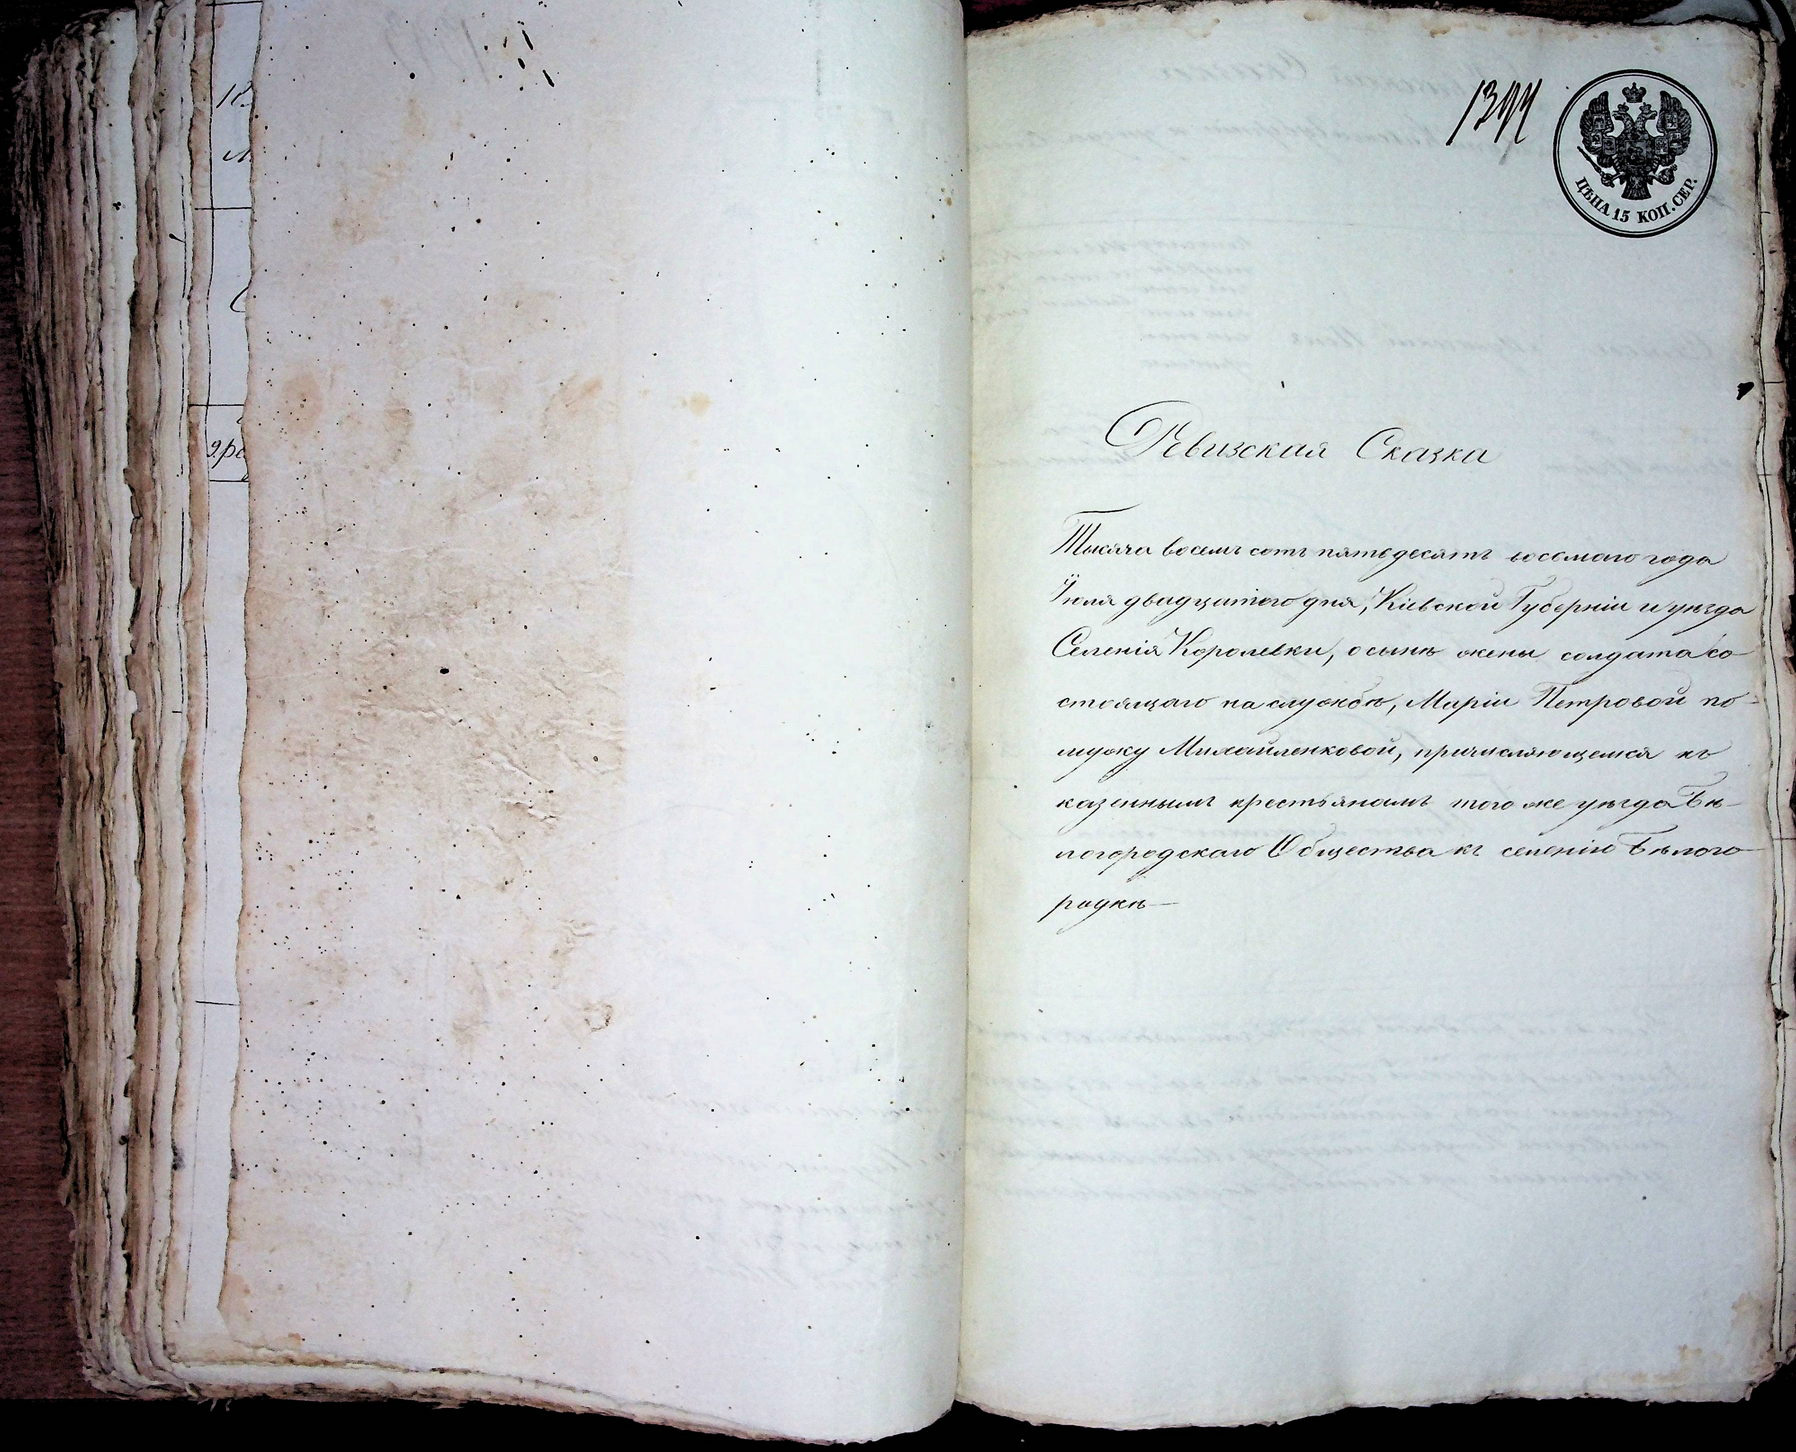 1394
ЦѢНА 15 КОП. СЕР.
Ревизская Сказка
Тысяча восемь сотъ пятьдесятъ восьмаго года
Іюля двадцатого дня, Кіевской Губерніи и уѣзда
Селенія Королевки, о сынѣ жены солдата со-
стоящаго на службѣ, Маріи Петровой по-
мужу Михайленковой, причисляющемся къ
казеннымъ крестьянамъ того же уѣзда Бѣ-
логородскаго Общества къ селенію Бѣлого-
радкѣ—